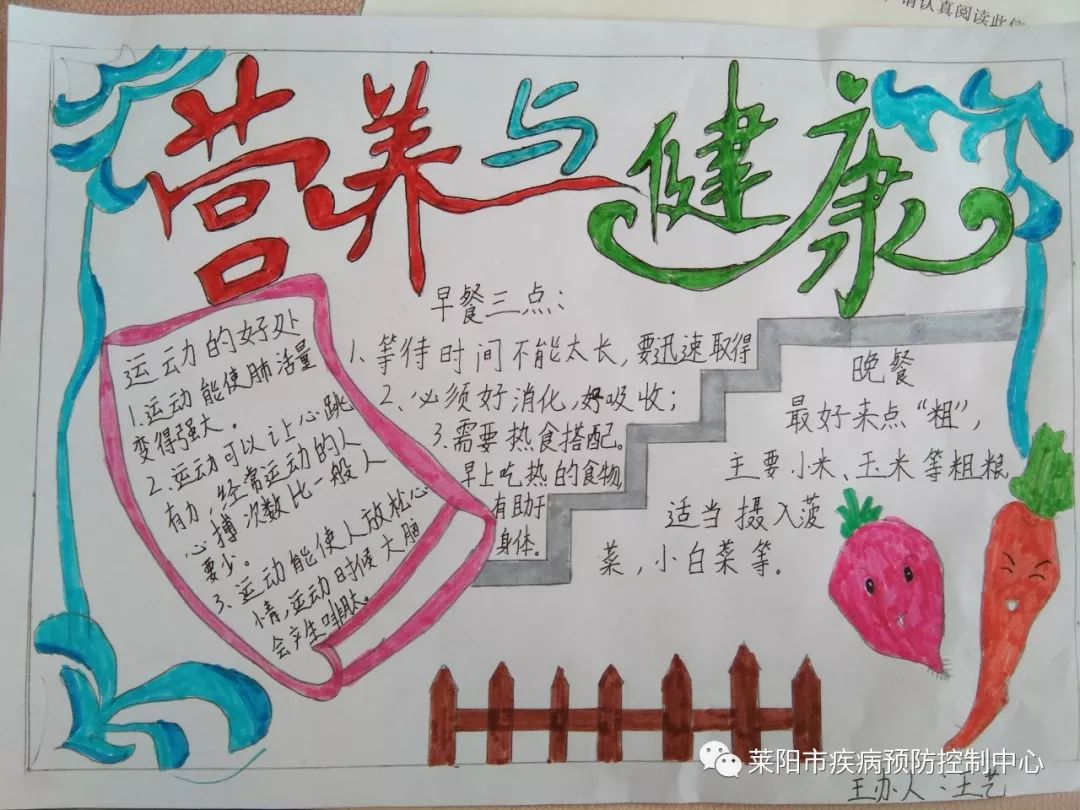 请认真阅读此信
营养与健康
运动的好处
1.运动能使肺活量
变得强大。
2.运动可以让心跳
有力,经常运动的人
心搏次数比一般人
要少。
3、运动能使人放松心
情,运动时候大脑
会产生啡肽。
早餐三点:
1、等待时间不能太长,要迅速取得
2、必须好消化,好吸收;
3、需要热食搭配。
早上吃热的食物,
有助于
身体。
晚餐
最好来点“粗”,
主要小米、玉米等粗粮
适当摄入菠
菜,小白菜等.
莱阳市疾病预防控制中心
主办人:王艺